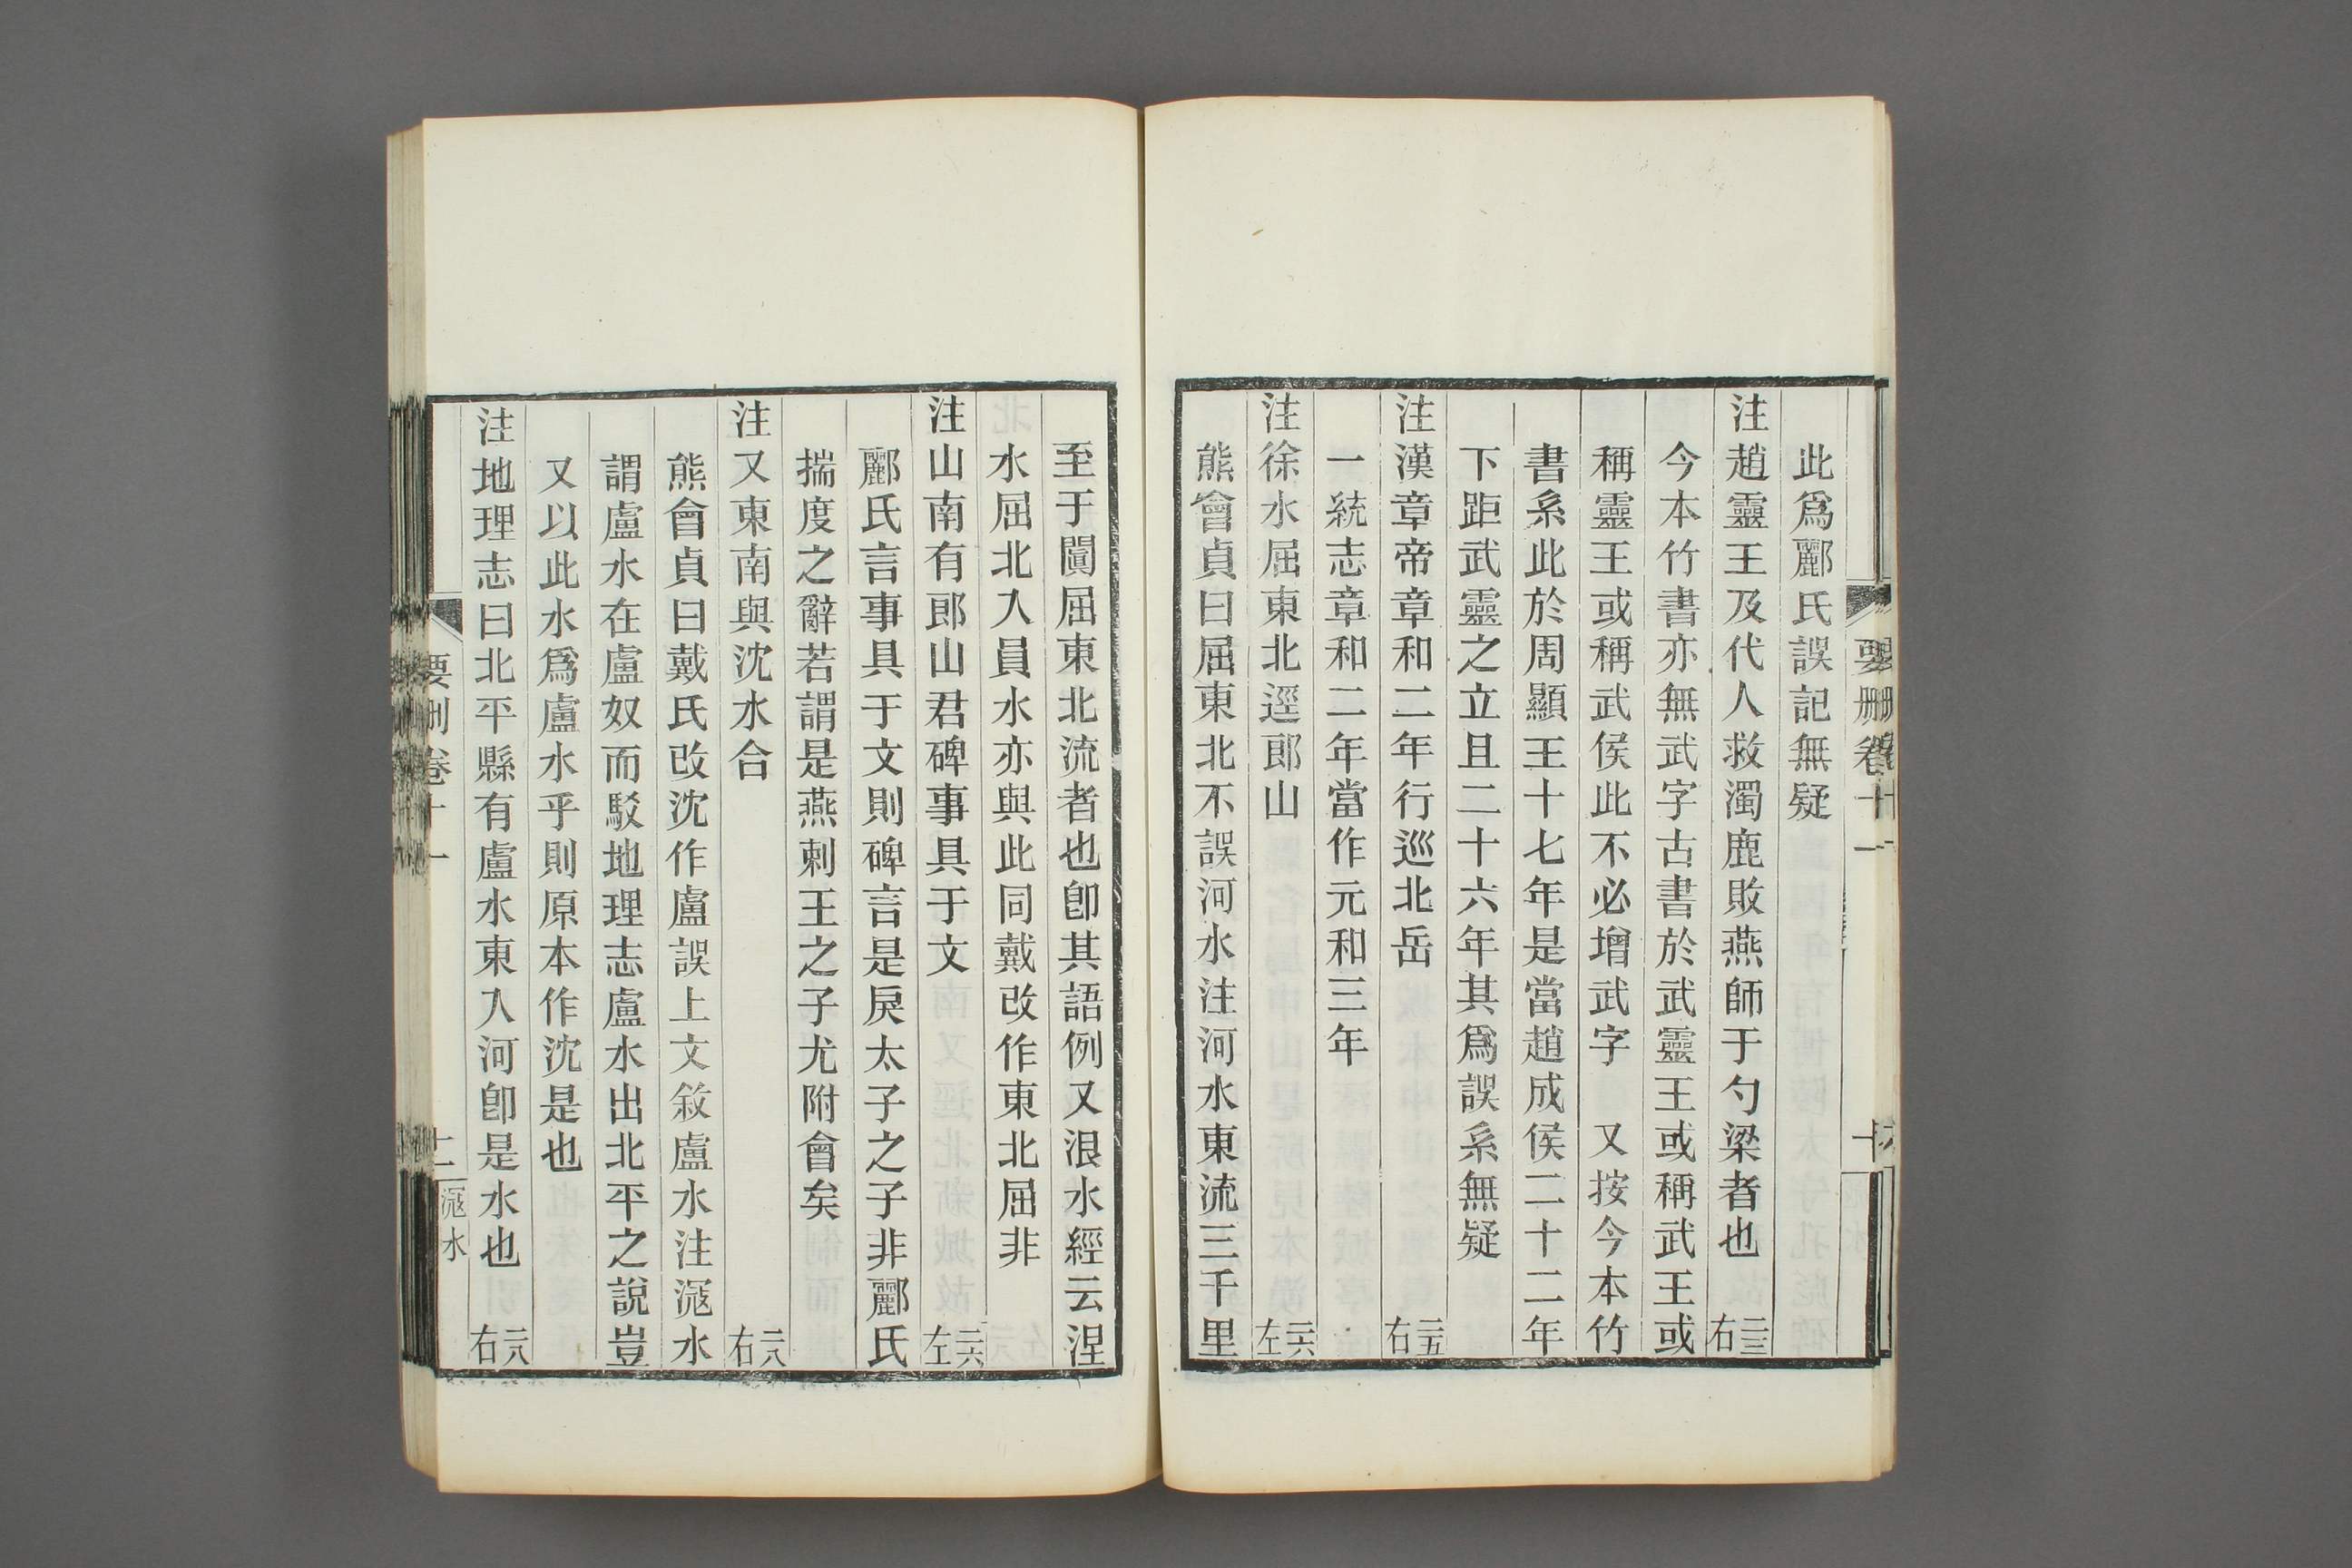 此爲酈氏誤記無疑
注趙靈王及代人救濁鹿敗燕師于勺梁者也 二三右
今本竹書亦無武字古書於武靈王或稱武王或
稱靈王或稱武侯此不必增武字 又按今本竹
書系此於周顯王十七年是當趙成侯二十二年
下距武靈之立且二十六年其爲誤系無疑
注漢章帝章和二年行巡北岳 二五右
一統志章和二年當作元和三年
注徐水屈東北逕郎山 二六左
熊會貞曰屈東北不誤河水注河水東流三千里
至于闐屈東北流者也卽其語例又浪水經云涅
水屈北入員水亦與此同戴改作東北屈非
注山南有郎山君碑事具于文 二六左
酈氏言事具于文則碑言是戾太子之子非酈氏
揣度之辭若謂是燕剌王之子尤附會矣
注又東南與沈水合 二八右
熊會貞曰戴氏改沈作盧誤上文敘盧水注滱水
謂盧水在盧奴而駁地理志盧水出北平之說豈
又以此水爲盧水乎則原本作沈是也
注地理志曰北平縣有盧水東入河卽是水也 二八右
要刪卷十一
滱水